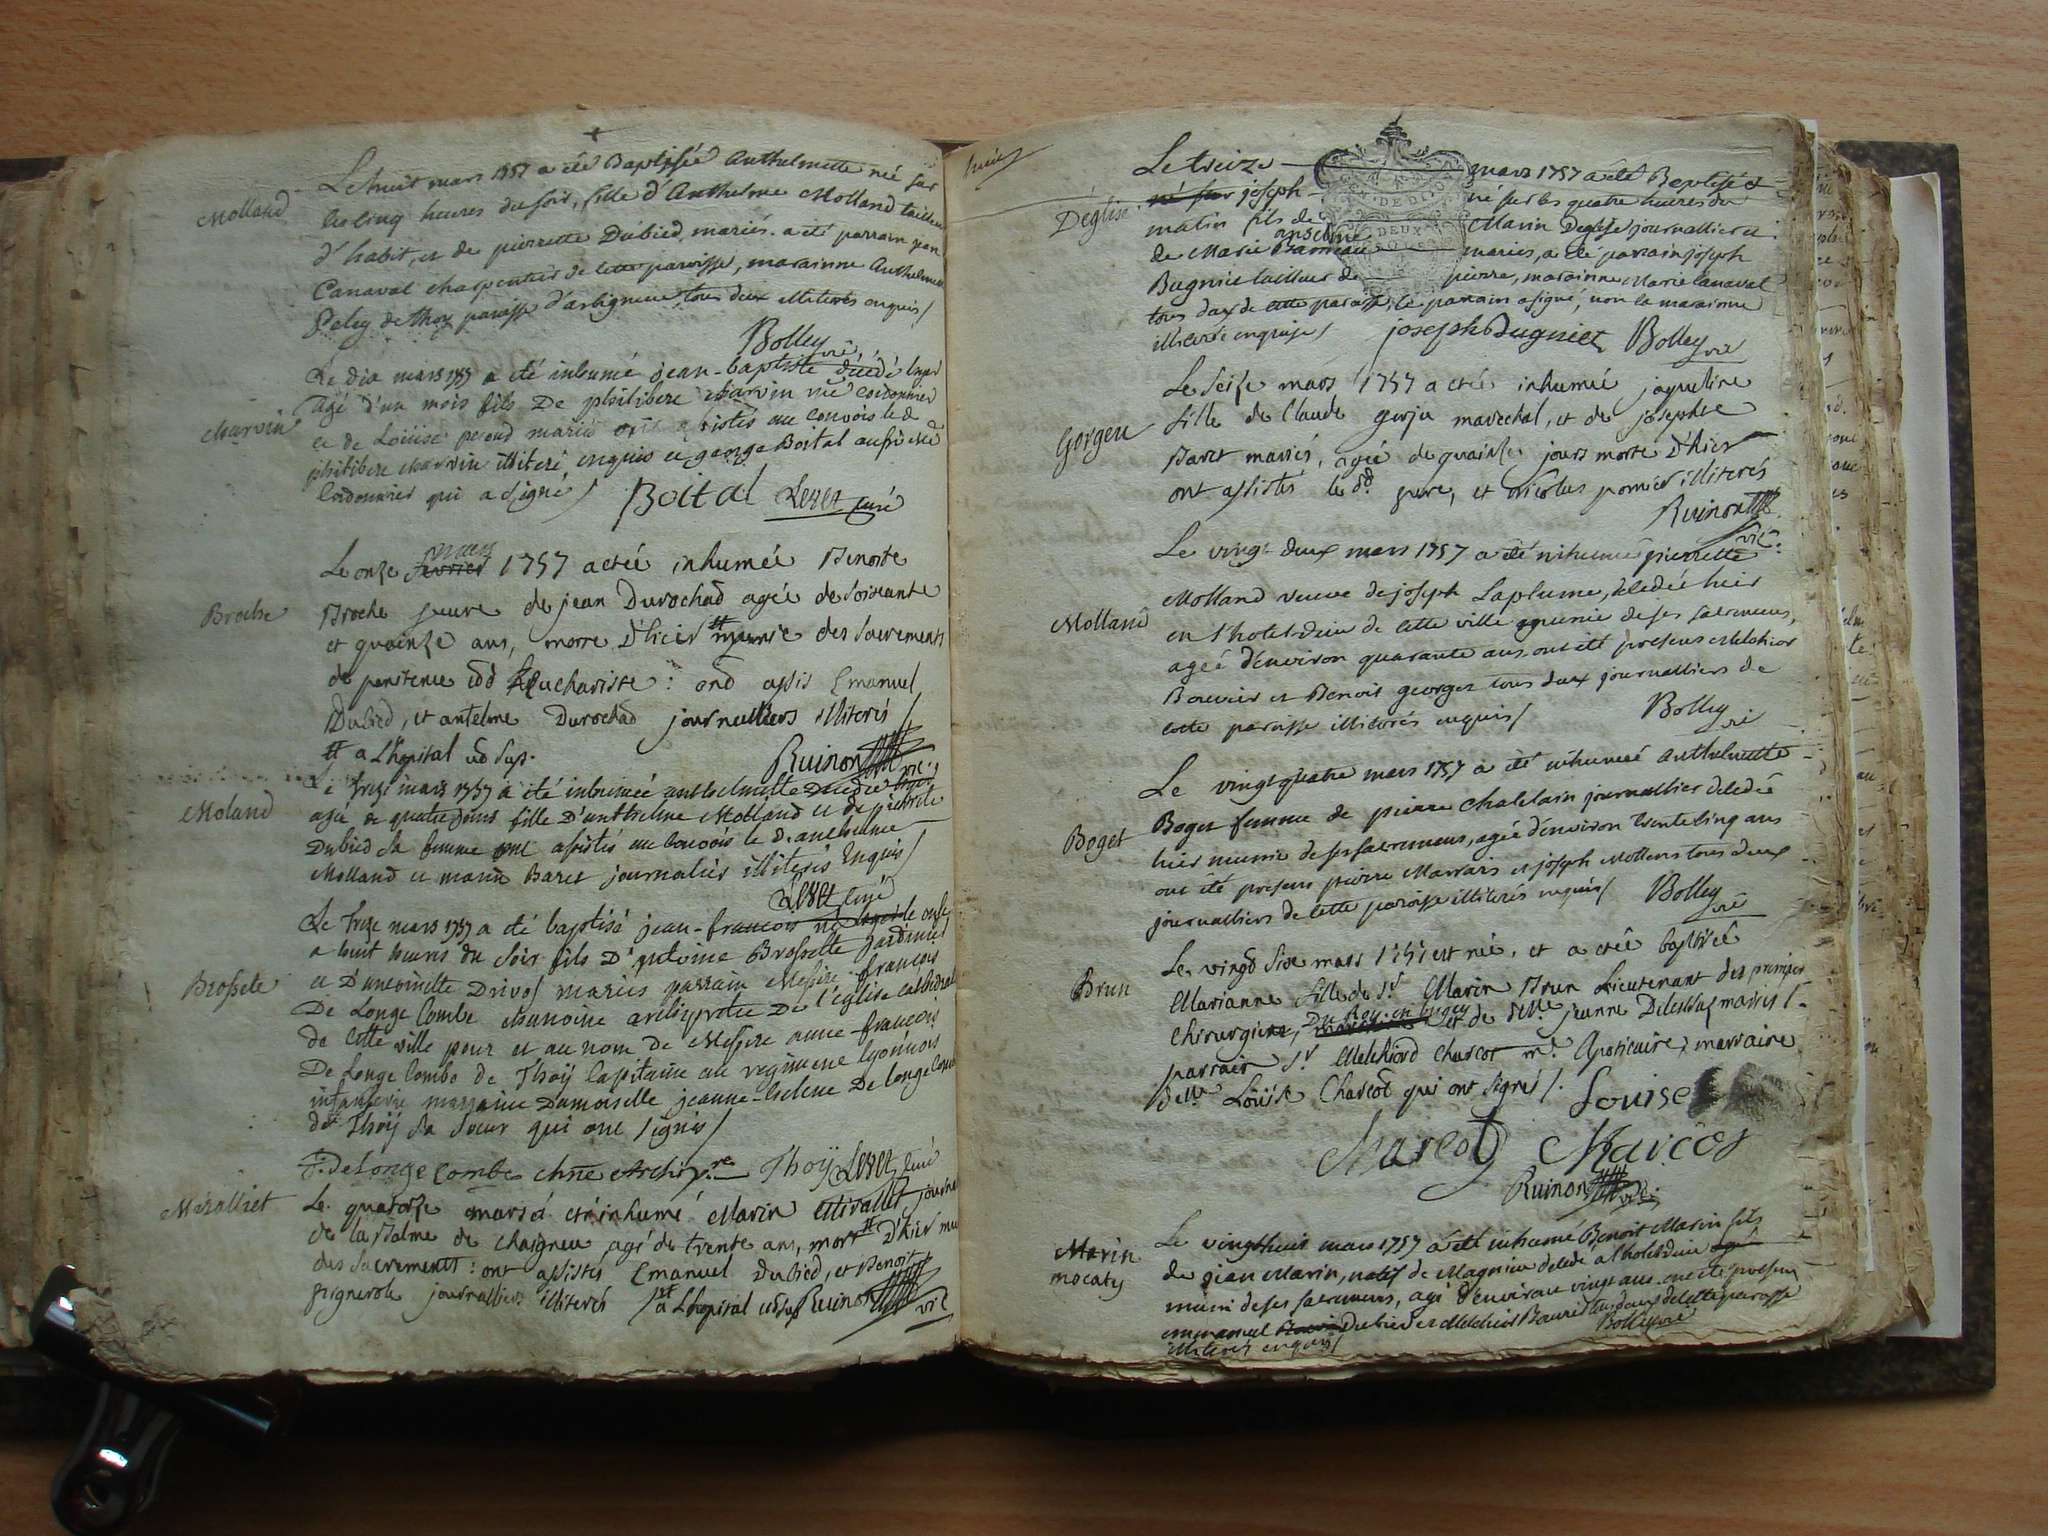 Molland
Le huit mars 1757 a été Baptisée Anthelmette née sur
les cinq heures du soir, fille d'Anthelme Molland tailleur
d'habit, et de pierrette Dubied, mariés. a été parrain jean
Canaval charpentier de cette paroisse, marainne Anthelmette
de Thoy paroisse d'arbignieu tous deux illiterés enquis /
Bolley vic.
Charvin
Le dix mars 1757 a été inhumé jean-baptiste décédé
agé d'un mois fils De philibert charvin cordonnier
et de Louise perond mariés ont assistés au convois le d
philibert charvin illiteré enquis et george Boital aussi
Cordonnier qui a signé /
Boital Leret curé
Broche
Le onze fevrier mars 1757 a etée inhumée Benoite
Broche veuve de jean Durochad agée de soixante
et quainze ans, morte d'hier # munie des sacrements
de penitence Eucharistie : ond assis Emanuel
Dubied, et antelme Durochad journalliers illiterés /
# a L'hopital
Ruinon vic.
Moland
Le treize mars 1757 a été inhumée anthelmette
agée de quatre jours fille D'anthelme Molland et de pierrette
Dubied sa femme ont assistés au convois le d. anthelme
Molland et marin Baret journaliés illiterés Enquis /
Leret curé
Brossete
Le treize mars 1757 a été baptisé jean-francois né le onze
a huit heures du soir fils D'antoine Brossette jardinier
et D'antoinette Drivos mariés parrain Messire francois
De Longe Combe chanoine archiprêtre De l'église cathédrale
de cette ville pour et au nom de Messire anne-francois
De Longe Combe de Thoÿ Capitaine au regiment lyonnois
infanterie marraine Damoiselle jeanne-helene De Longe Combe
de Thoÿ sa soeur qui ont signés /
De Longe Combe chne Archip.re Thoÿ Leret curé
Miralliet
Le quatorze mars a eté inhumé Marin Mirallet
de la Balme de Chaigneu agé de trente ans, mort # D'hier
des sacrements : ont assistés Emanuel Dubied, et Benoit
pignerole journalliers illiterés / # a L'hopital Ruinon vic
Déglise
Le treize mars 1757 a été Baptisé
né sur joseph né sur les quatre heures du
matin fils de Marin Déglise journallier et
anselme
de Marie Barneau mariés, a été parrain joseph
Bugniet tailleur de pierre, marainne Marie Canaval
tous deux de cette paroisse, le parrain a signé, non la marainne
illiterée enquise /
joseph Bugniet Bolley vic
Gorgeu
Le seize mars 1757 a etée inhumée jaqueline
fille de Claude gorju marechal, et de josephte
Baret mariés, agée de quainze jours morte d'hier
ont assistés le sd. pere, et nicolas pomier illiterés
Ruinon vic.
Molland
Le vingt deux mars 1757 a été inhumée pierrette
Molland veuve de joseph Laplume, décédée hier
en l'hotel dieu de cette ville munie de ses sacremens,
agée d'environ quarante ans, ont été presens Melchior
Bouvier et Benoit georges tous deux journalliers de
cette paroisse illiterés enquis /
Bolley vic
Boget
Le vingt quatre mars 1757 a été inhumée Anthelmette
Boget femme de pierre Chatelain journallier décédée
hier munie de ses sacremens, agée d'environ trente cinq ans
ont été presens pierre Marrais et joseph Mollens tous deux
journalliers de cette paroisse illiterés enquis /
Bolley vic
Brun
Le vingt six mars 1757 est née, et a etée baptisée
Marianne fille de Sr Marin Brun Lieutenant des premiers
Du Roy en bugey
chirurgiens, et de delle jeanne Delestas mariés
parrain Sr Melchiord Charcot me. Apoticaire; marraine
Delle Loüise Charcot qui ont signés /.
Louise
Charcot Charcot
Ruinon vic.
Marin
mocaty
Le vingt huit mars 1757 a été inhumé Benoit Marin fils
de jean Marin, natif de Magnieu décédé a l'hotel dieu
muni de ses sacremens, agé d'environ vingt ans ont été presens
emmanuel Dubied et Melchior Bouvier tous deux de cette paroisse
illiterés enquis /
Bolley vic